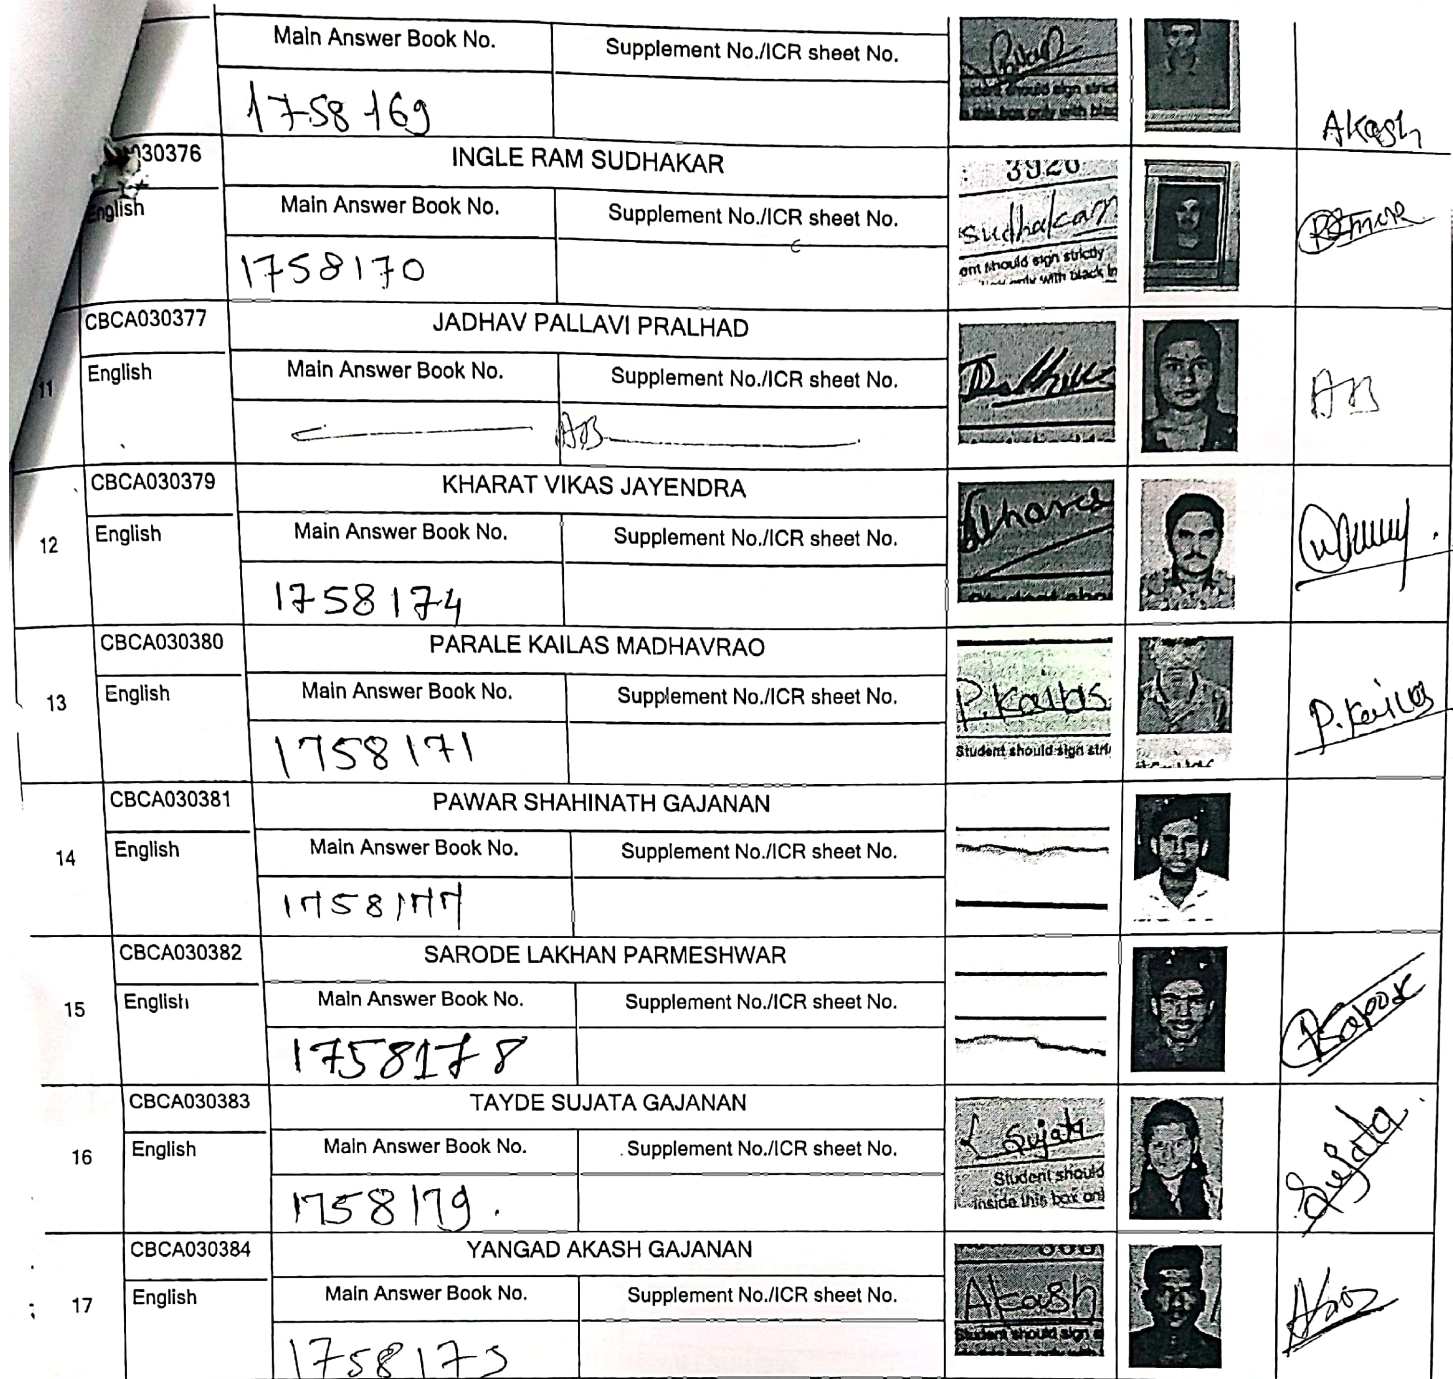 Main Answer Book No. Supplement No./ICR sheet No.
1758169 Akash
030376 INGLE RAM SUDHAKAR 3926
English Main Answer Book No. Supplement No./ICR sheet No. Sudhakar
1758170 ent should sign strictly
only with black in
CBCA030377 JADHAV PALLAVI PRALHAD
11 English Main Answer Book No. Supplement No./ICR sheet No. AB
AB
CBCA030379 KHARAT VIKAS JAYENDRA
12 English Main Answer Book No. Supplement No./ICR sheet No.
1758174
CBCA030380 PARALE KAILAS MADHAVRAO
13 English Main Answer Book No. Supplement No./ICR sheet No. P.Kailas P.Kailas
1758171 Student should sign stri
CBCA030381 PAWAR SHAHINATH GAJANAN
14 English Main Answer Book No. Supplement No./ICR sheet No.
1758177
CBCA030382 SARODE LAKHAN PARMESHWAR
15 English Main Answer Book No. Supplement No./ICR sheet No.
1758178
CBCA030383 TAYDE SUJATA GAJANAN
16 English Main Answer Book No. Supplement No./ICR sheet No. Sujata Sujata
1758179. Student should
inside this box onl
CBCA030384 YANGAD AKASH GAJANAN
17 English Main Answer Book No. Supplement No./ICR sheet No. Akash
1758175 Student should sign s